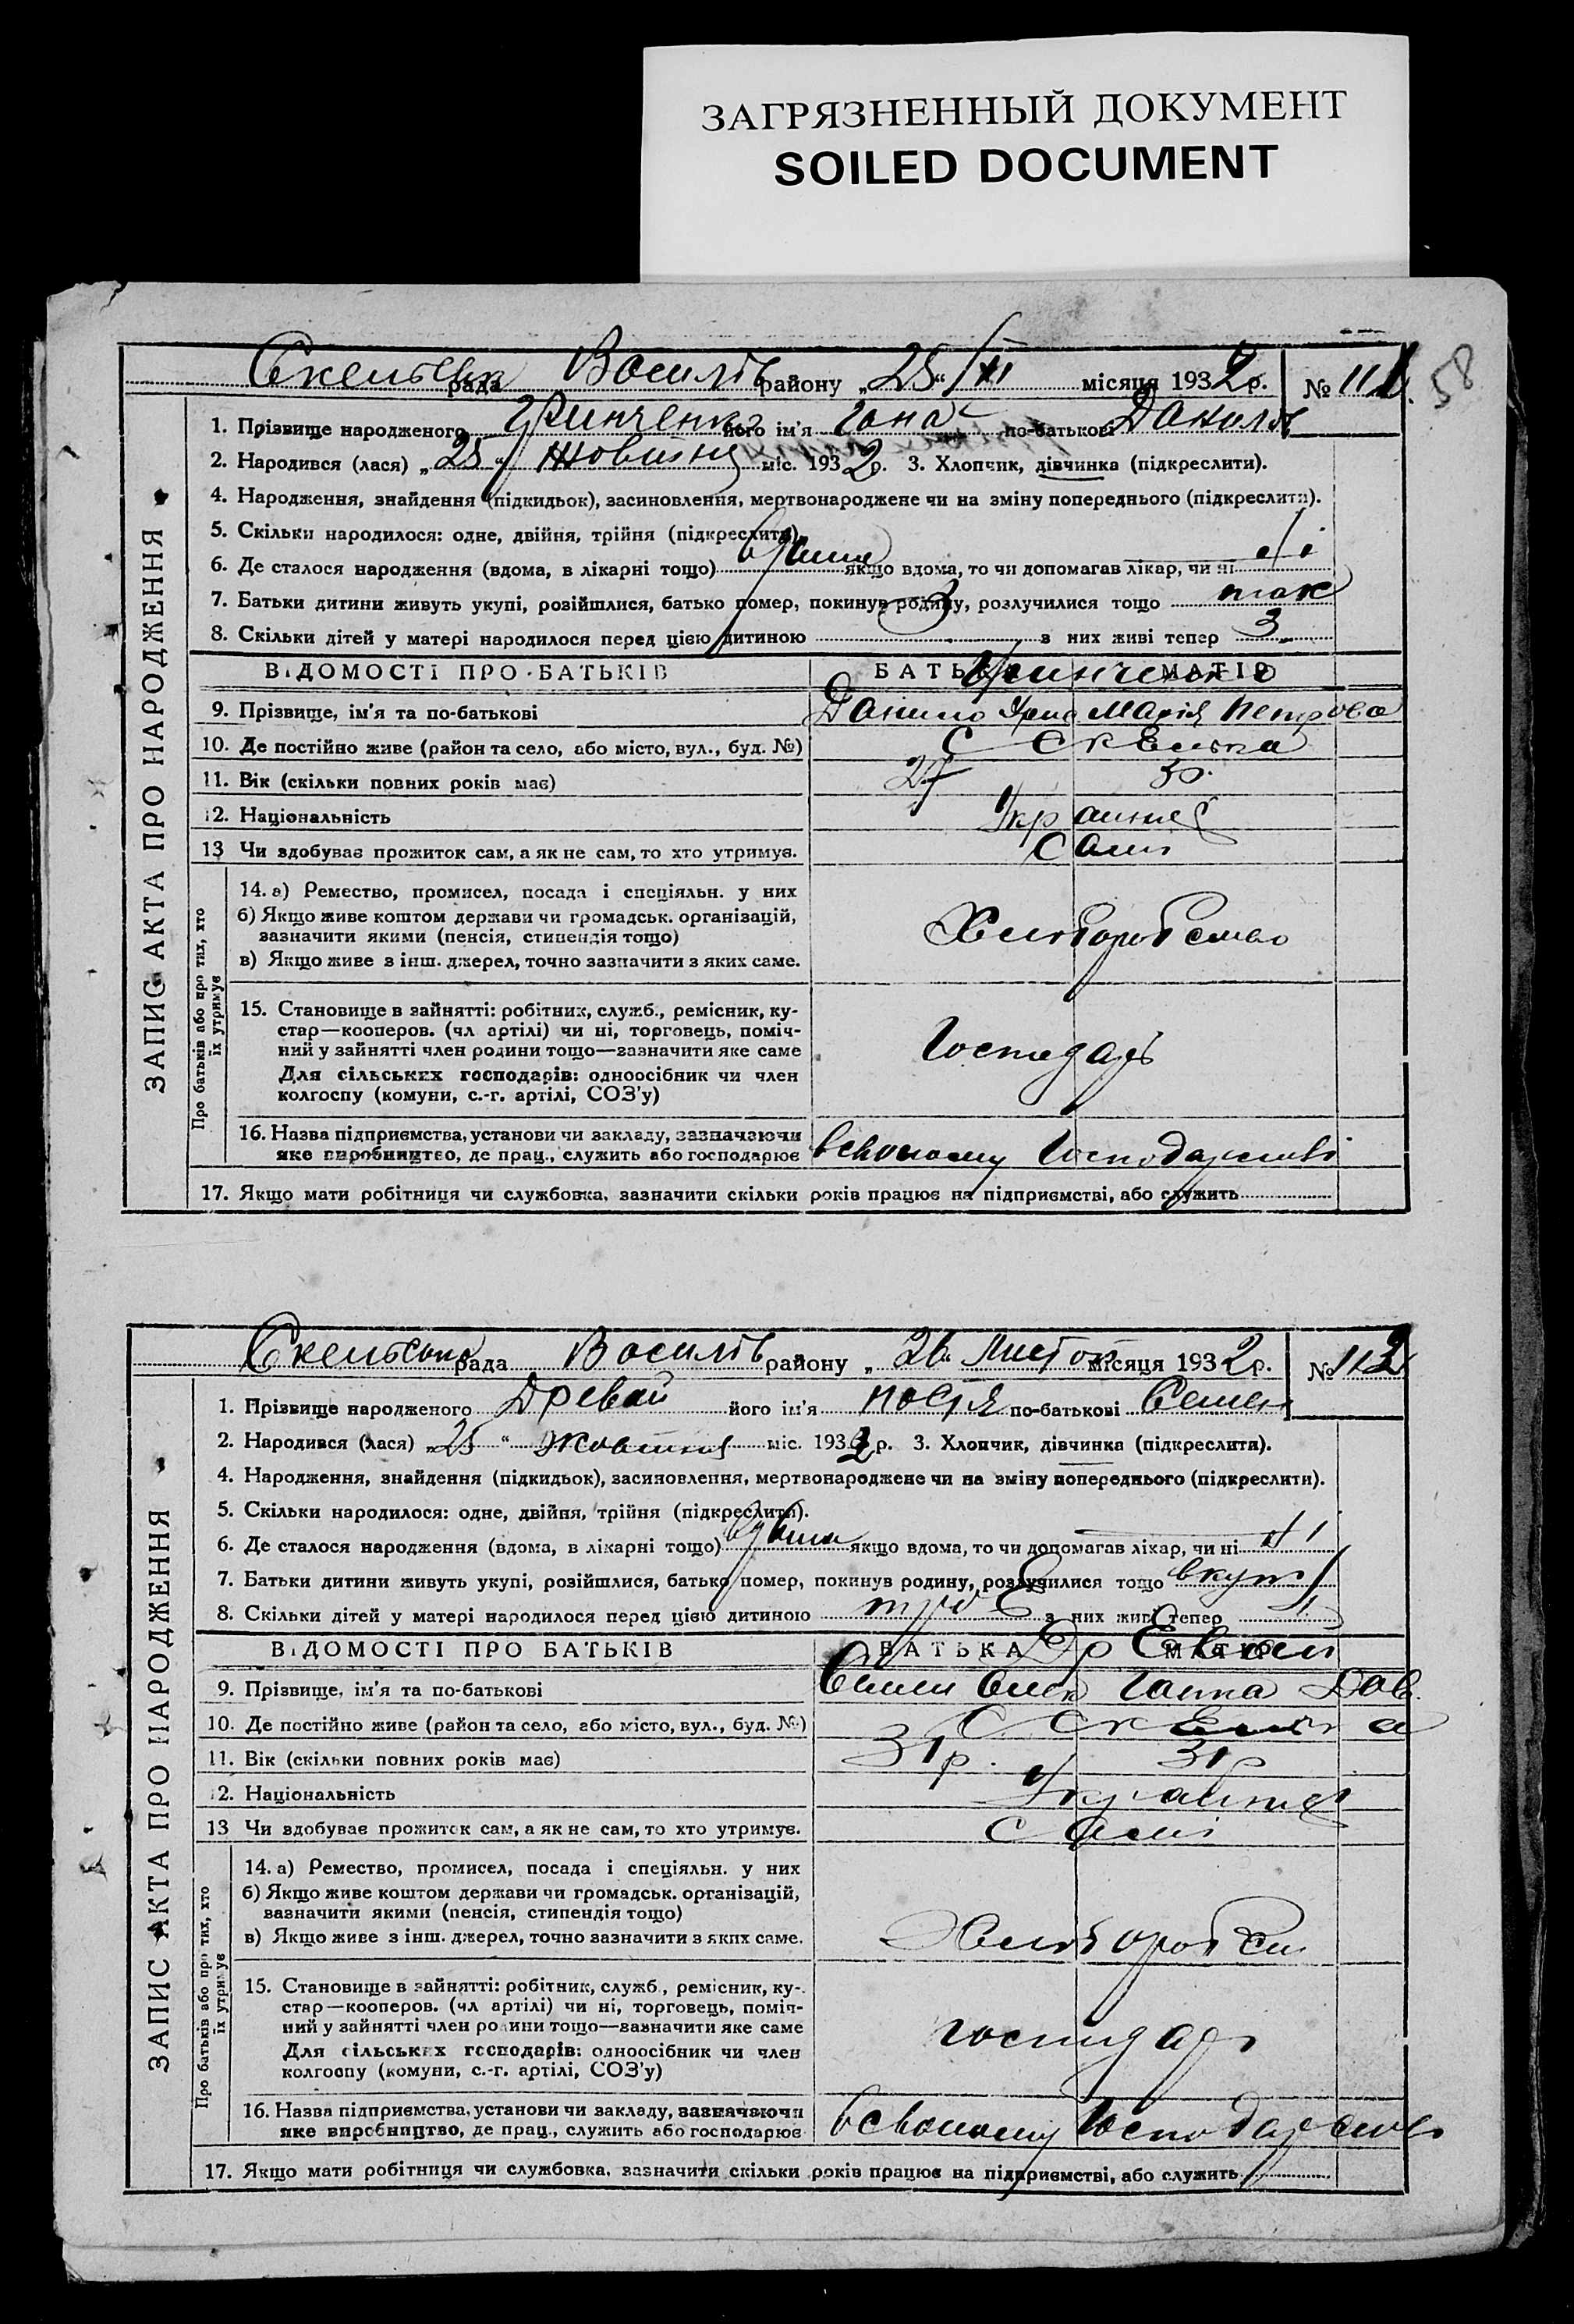 ЗАГРЯЗНЕННЫЙ ДОКУМЕНТ
SOILED DOCUMENT
58
рада Василів району „25“ XI місяця 1932 р. № 111
1. Прізвище народженого Гринченко його ім'я Гана по-батькові Данилов
2. Народився (лася) „25“ Жовтня міс. 1932 р. 3. Хлопчик, дівчинка (підкреслити).
4. Народження, знайдення (підкидьок), засиновлення, мертвонароджене чи на зміну попереднього (підкреслити).
5. Скільки народилося: одне, двійня, трійня (підкреслити)
6. Де сталося народження (вдома, в лікарні тощо) вдома якщо вдома, то чи допомагав лікар, чи ні ні
7. Батьки дитини живуть укупі, розійшлися, батько помер, покинув родину, розлучилися тощо так
8. Скільки дітей у матері народилося перед цією дитиною 3 з них живі тепер 3
ЗАПИС АКТА ПРО НАРОДЖЕННЯ
ВІДОМОСТІ ПРО БАТЬКІВ БАТЬКА МАТІР
Гринченко
9. Прізвище, ім'я та по-батькові Данило Марія Петрова
10. Де постійно живе (район та село, або місто, вул., буд. №) С Скелька
11. Вік (скільки повних років має) 27 30
12. Національність Українці
13 Чи здобуває прожиток сам, а як не сам, то хто утримує. Самі
Про батьків або про тих, хто
їх утримує
14. а) Ремество, промисел, посада і спеціяльн. у них
б) Якщо живе коштом держави чи громадськ. організацій,
зазначити якими (пенсія, стипендія тощо)
Хліборобство
в) Якщо живе з інш. джерел, точно зазначити з яких саме.
15. Становище в зайнятті: робітник, служб., ремісник, ку-
стар—кооперов. (чл артілі) чи ні, торговець, поміч-
ний у зайнятті член родини тощо—зазначити яке саме
Господар
Для сільських господарів: одноосібник чи член
колгоспу (комуни, с.-г. артілі, СОЗ'у)
16. Назва підприємства, установи чи закладу, зазначаючи
яке виробництво, де прац., служить або господарює всвоєму Господарстві
17. Якщо мати робітниця чи службовка, зазначити скільки років працює на підприємстві, або служить
Скельська рада Василів району „26“ Листоп місяця 1932 р. № 112
1. Прізвище народженого Древаль його ім'я Настя по-батькові Семен
2. Народився (лася) „25“ Жовтня міс. 1932 р. 3. Хлопчик, дівчинка (підкреслити).
4. Народження, знайдення (підкидьок), засиновлення, мертвонароджене чи на зміну попереднього (підкреслити).
5. Скільки народилося: одне, двійня, трійня (підкреслити).
6. Де сталося народження (вдома, в лікарні тощо) вдома якщо вдома, то чи допомагав лікар, чи ні ні
7. Батьки дитини живуть укупі, розійшлися, батько помер, покинув родину, розлучилися тощо вкупі
8. Скільки дітей у матері народилося перед цією дитиною троЄ з них живі тепер
ЗАПИС АКТА ПРО НАРОДЖЕННЯ
ВІДОМОСТІ ПРО БАТЬКІВ БАТЬКА МАТІР
9. Прізвище, ім'я та по-батькові Семен Олек Ганна Дав.
10. Де постійно живе (район та село, або місто, вул., буд. №) С Скелька
11. Вік (скільки повних років має) 31 р. 31 р
12. Національність Українці
13 Чи здобуває прожиток сам, а як не сам, то хто утримує. самі
Про батьків або про тих, хто
їх утримує
14. а) Ремество, промисел, посада і спеціяльн. у них
б) Якщо живе коштом держави чи громадськ. організацій,
зазначити якими (пенсія, стипендія тощо)
в) Якщо живе з інш. джерел, точно зазначити з яких саме.
15. Становище в зайнятті: робітник, служб., ремісник, ку-
стар—кооперов. (чл артілі) чи ні, торговець, поміч-
ний у зайнятті член родини тощо—зазначити яке саме
господар
Для сільських господарів: одноосібник чи член
колгоспу (комуни, с.-г. артілі, СОЗ'у)
16. Назва підприємства, установи чи закладу, зазначаючи
яке виробництво, де прац., служить або господарює всвоєму Господарстві
17. Якщо мати робітниця чи службовка, зазначити скільки років працює на підприємстві, або служить